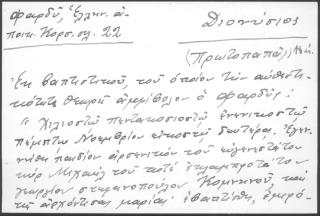 Φαρδύ, Ἑλλην. ἀ-
ποικ. Κορσ. σλ. 22
Διονύσιος
(Πρωτοπαπᾶς)
Ἐκ βαπτιστικοῦ, τοῦ ὁποίου τὴν αὐθεντι-
κότητα θεωρεῖ ἀμφίβολον ὁ Φαρδύς:
"Χιλιοστῷ πεντακοσιοστῷ ἐνενικοστῷ
πέμπτῳ Νοεμβρίου εἰκοστῇ δευτέρᾳ. Ἐγεν-
νήθη παιδίον ἀρσενικὸν τοῦ εὐγενεστάτου
κὺρ Μιχαὴλ τοῦ ποτέ ἐκλαμπροτάτου
γεωργίου στεφανοπούλου Κομνηνοῦ καὶ
τῆς ἀρχόντισας μαρίας· ἐβαπτίσθη, ἐμυρό-